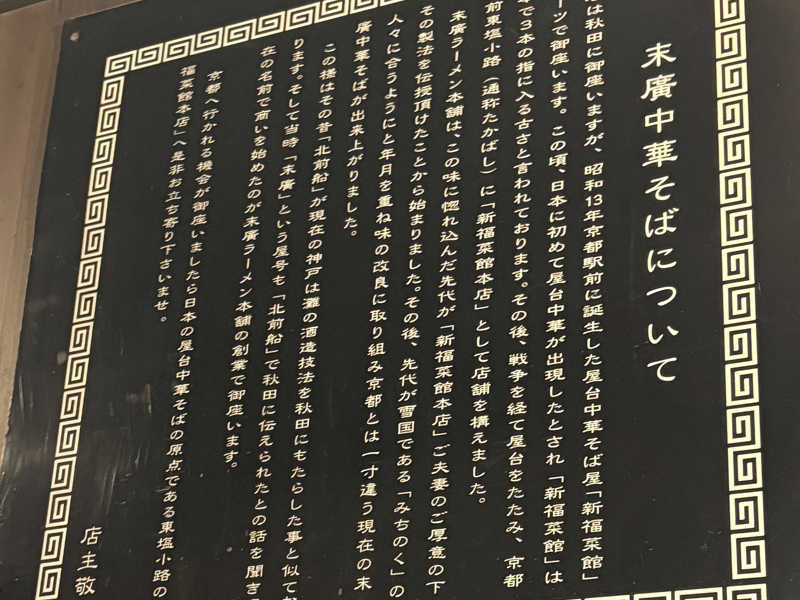 末廣中華そばについて
は秋田に御座いますが、昭和13年京都駅前に誕生した屋台中華そば屋「新福菜館」
ーツで御座います。この頃、日本に初めて屋台中華が出現したとされ「新福菜館」は
で3本の指に入る古さと言われております。その後、戦争を経て屋台をたたみ、京都
前東塩小路（通称たかばし）に「新福菜館本店」として店舗を構えました。
末廣ラーメン本舗は、この味に惚れ込んだ先代が「新福菜館本店」ご夫妻のご厚意の下
その製法を伝授頂けたことから始まりました。その後、先代が雪国である「みちのく」の
人々に合うようにと年月を重ね味の改良に取り組み京都とは一寸違う現在の末
廣中華そばが出来上がりました。
この様はその昔「北前船」が現在の神戸は灘の酒造技法を秋田にもたらした事と似て
ります。そして当時「末廣」という屋号も「北前船」で秋田に伝えられたとの話を聞き
在の名前で商いを始めたのが末廣ラーメン本舗の創業で御座います。
京都へ行かれる機会が御座いましたら日本の屋台中華そばの原点である東塩小路の
福菜館本店」へ是非お立ち寄り下さいませ。
店主敬